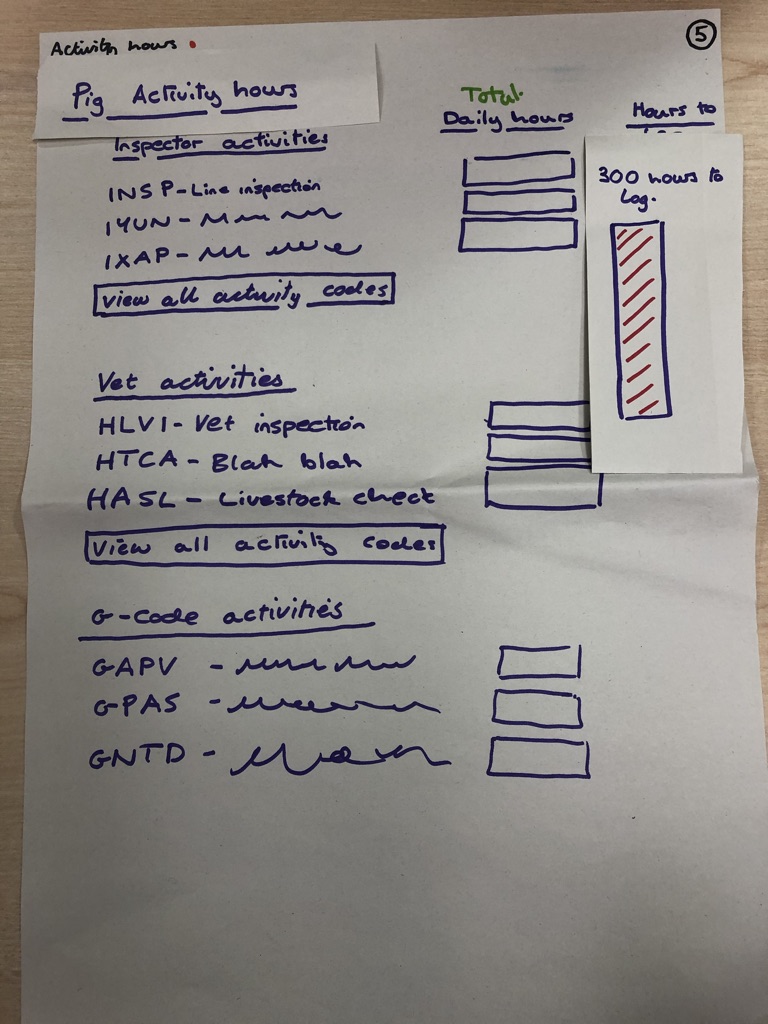 Activity hours
5
Pig Activity hours
Total
Daily hours
Hours to
Inspector activities
INSP-Line inspection
IYUN -
IXAP -
View all activity codes
300 hours to
Log.
Vet activities
HLVI- Vet inspection
HTCA - Blah blah
HASL - Livestock check
View all activity codes
G-Code activities
GAPV -
GPAS -
GNTD -